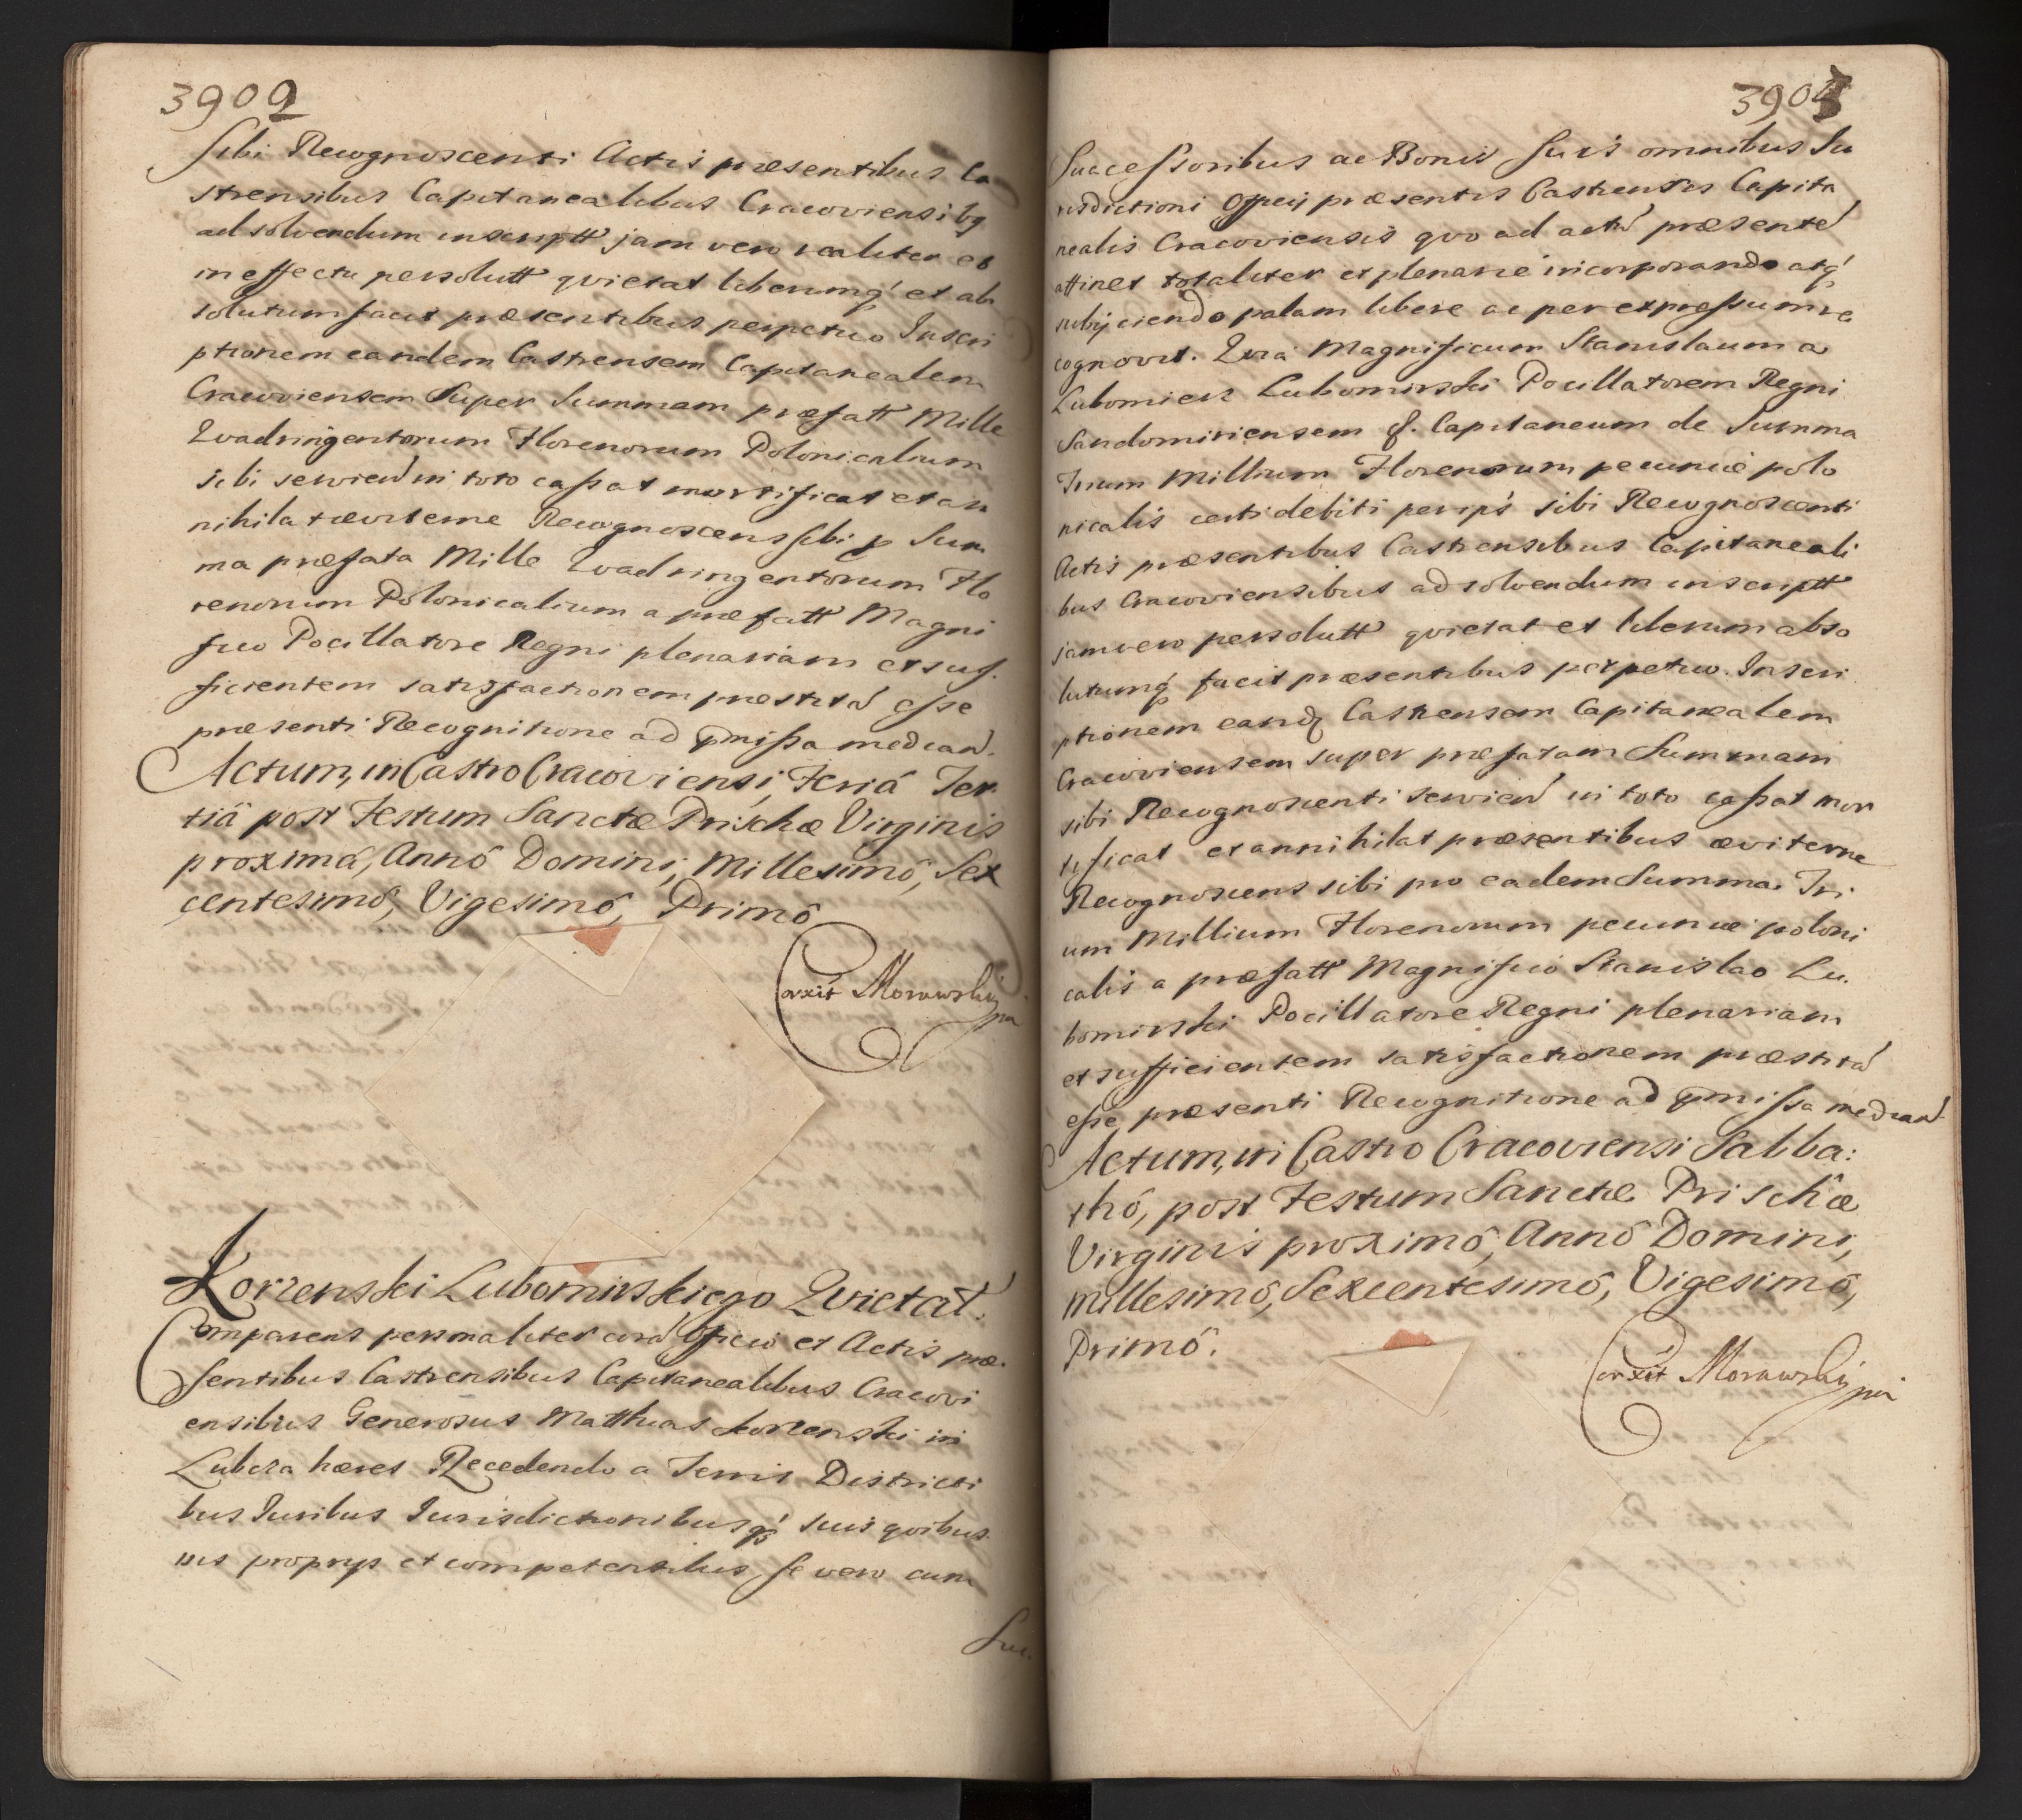 3902
Sibi Recognoscenti Actis præsentibus Ca
strensibus Capitanealibus Cracoviensibg
ad solvendum inscriptt jam vero realiter et
in effectu persolutt qvietat liberumq́ et ab
solutum facit præsentibus perpetuo Inscri
ptionem eandem Castrensem Capitanealem
Cracoviensem Super Summam præfatt Mille
Qvadringentorum Florenorum Polonicalium
sibi servien̄ in toto caſsat mortificat et an
nihilat æviterne Recognoscens sibi p Sum
ma præfata Mille Qvadringentorum Flo
renorum Polonicalium a præfatt Magni
fico Pocillatore Regni plenariam et suf.
ficientem satisfactionem præstitā eſse
præsenti Recognitione ad pmiſsa median̄.
Actum, in Castro Cracoviensi, Feriá Ter
tiâ post Festum Sanctæ Prischæ Virginis
proximá, Annô Domini, Millesimô, Sex
centesimô, Vigesimô, Primô
Corxit Morawskj
mp
Korzenski Lubomirskiego Qvietat.
Comparens personaliter corā Officio et Actis præ.
sentibus Castrensibus Capitanealibus Cracovi
ensibus Generosus Matthias Korzenski in
Lubcza hæres Recedendo a Terris Districti
bus Iuribus Iurisdictionibusq́ suis qvibus.
vis proprys et competentibus, se vero cum
Suc.
3903
Succeſsoribus ac Bonis Suis omnibus Iu
risdictioni Offcij præsentis Castrensis Capita
nealis Cracoviensis qvo ad actū præsentē
attinet totaliter et plenarie incorporando atq́
subijciendo palam libere ac per expreſsum re
cognovit. Qvia Magnificum Stanislaum a
Lubomierz Lubomirski Pocillatorem Regni
Sandomiriensem &. Capitaneum de Summa
Trium Millium Florenorum pecuniæ polo
nicalis certi debiti per ips̄ sibi Recognoscenti
Actis præsentibus Castrensibus Capitaneali
bus Cracoviensibus ad solvendum inscriptt
jam vero persolutt qvietat et liberum abso
lutumq́ facit præsentibus perpetuo. Inscri
ptionem eand Castrensem Capitanealem
Cracoviensem super præfatam Summam
sibi Recognoscenti servien̄ in toto caſsat mor
tificat et annihilat præsentibus æviterne
Recognoscens sibi pro eadem Summa Tri
um Millium Florenorum pecuniæ poloni
calis a præfatt Magnificô Stanislao Lu.
bomirski Pocillatore Regni plenariam
et sufficientem satisfactionem præstitā
eſse præsenti Recognitione ad pmiſsa median̄.
Actum, in Castro Cracoviensi Sabba:
thô, post Festum Sanctæ Prischæ
Virginis proximô, Annô Domini,
Millesimô, Sexcentesimô, Vigesimô,
Primô.
Corxit Morawskj mp